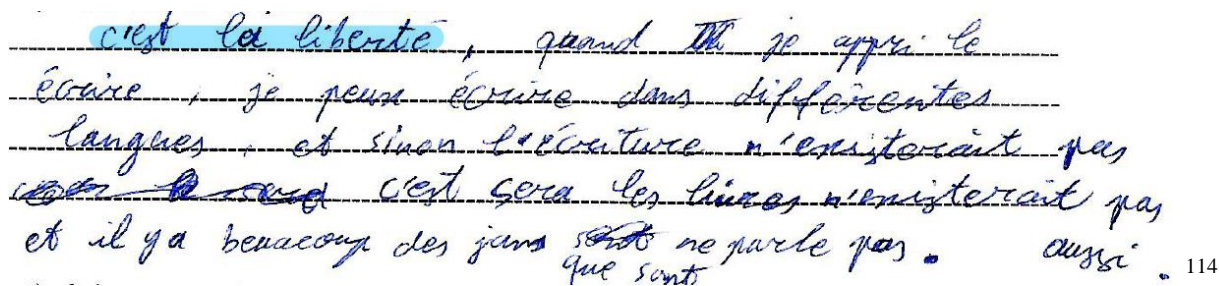 c'est la liberté, quand je appri le
écrire, je peux écrire dans différentes
langues, et sinon l'écriture n'existerait pas
c'est sera les livres n'existerait pas
et il y a beaucoup des jans ne parle pas. aussi.
que sont
114